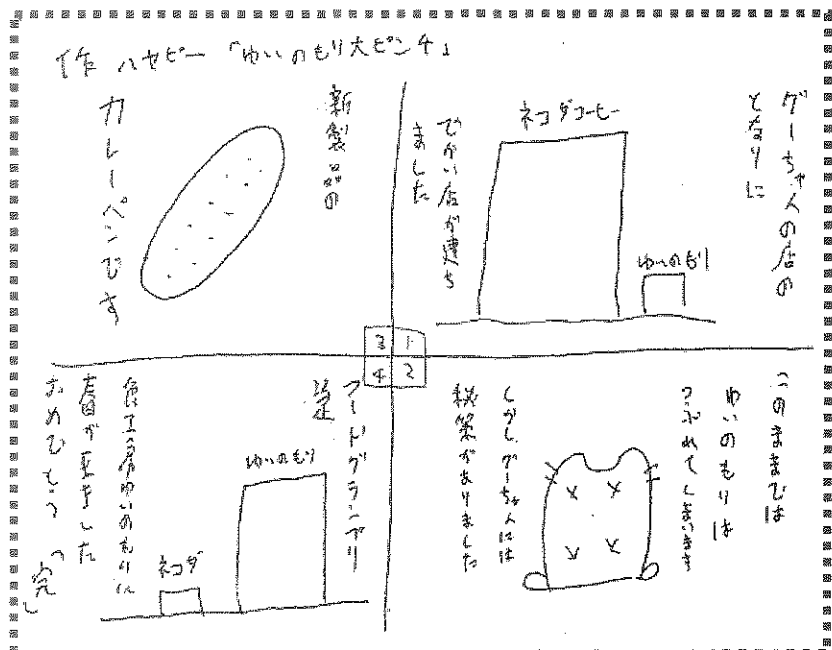 作 ハセピー 「ゆいのもり大ピンチ」
グーちゃんの店の
となりに
ネコダコーヒー
ゆいのもり
でかい店が建ち
ました
1
2
3
4
このままでは
ゆいのもりは
つぶれてしまいます
しかしグーちゃんには
秘策がありました
新製品の
カレーペンです
フードグランプリ
ゆいのもり
ネコダ
食工房ゆいのもりに
春が来ました
おめでとう 「完」